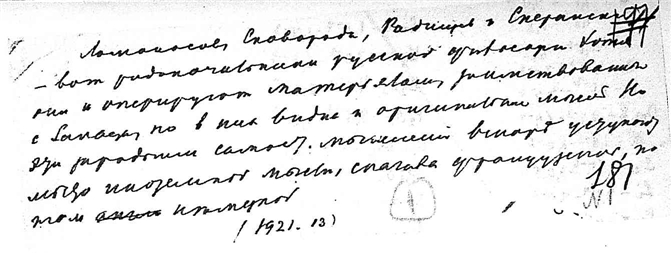 Ломоносов, Сковорода, Радищев и Сперанский
– вот родоначальники русской философии. Хотя
они и оперируют материалом, заимствованным
с Запада, но в них видна и оригинальная мысль. Но
эти зародыши самост. мышления вскоре уступают
место иноземной мысли, сначала французской, по
том немецкой
(1921. 13)
1
187
N1